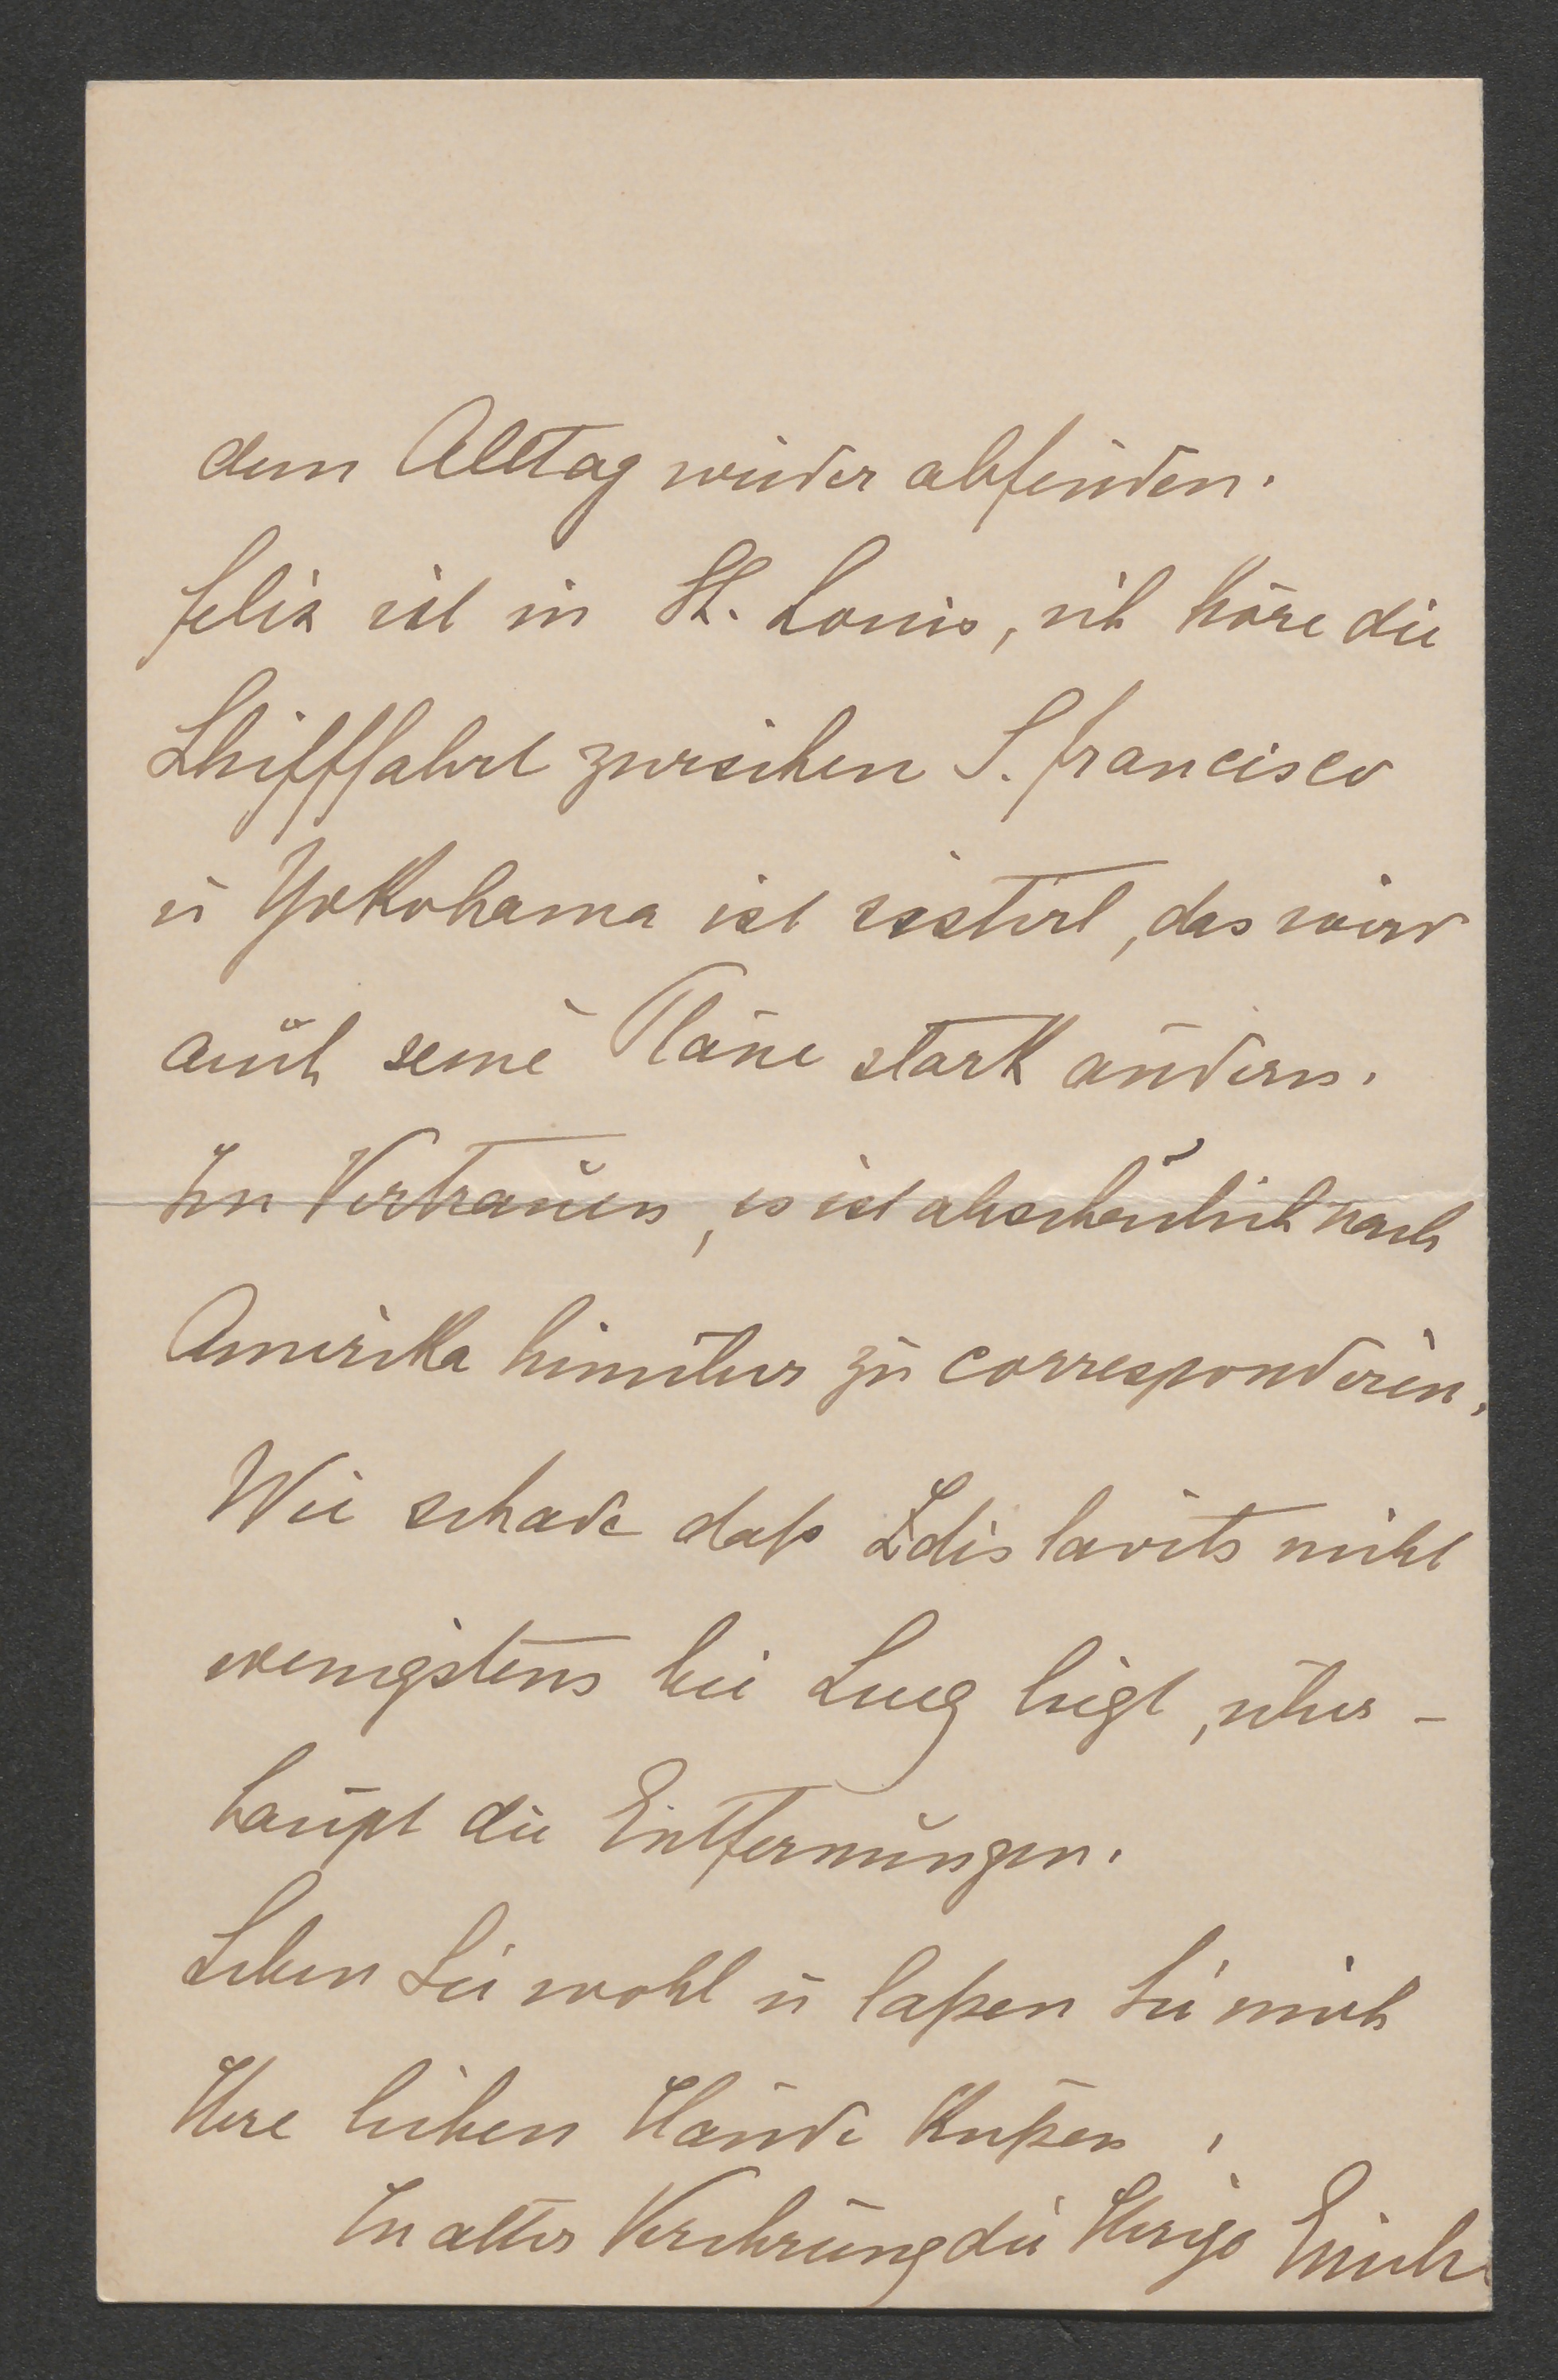 dem Alltag wieder abfinden.
Felix ist in St. Louis, ich höre die
Schifffahrt zwischen S. Francisco
u Yokohama ist sistirt, das wird
auch seine Pläne stark ändern.
Im Vertrauen, es ist abscheulich nach
Amerika hinüber zu correspondiren.
Wie schade daß Zdislavits nicht
wenigstens bei Lueg liegt, über-
haupt die Entfernungen.
Leben Sie wohl u laßen Sie mich
Ihre lieben Hände küßen.
In alter Verehrung die Ihrige